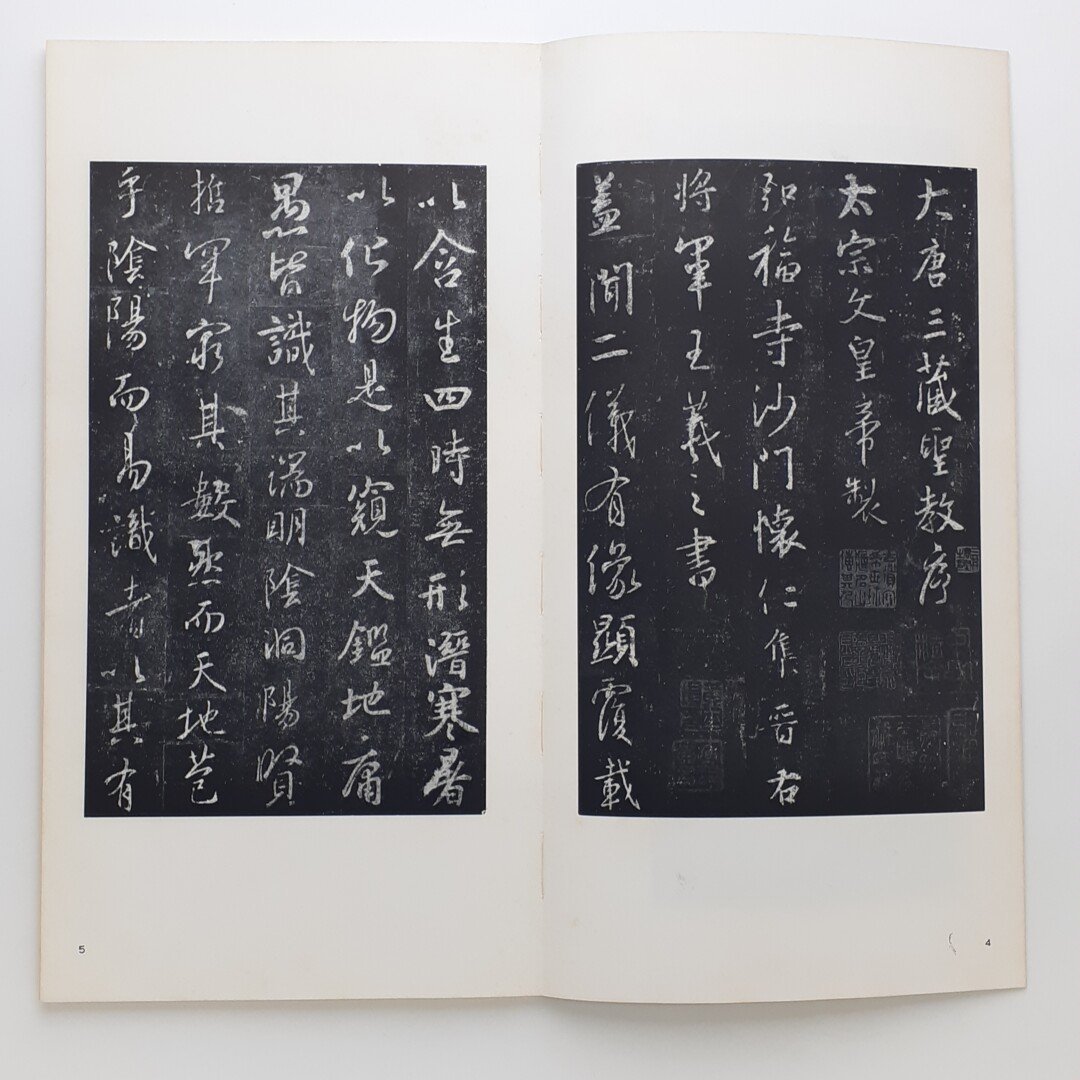 大唐三藏聖教序
太宗文皇帝製
弘福寺沙門懷仁集晉右
將軍王羲之書
蓋聞二儀有像顯覆載
4
以含生四時無形潛寒暑
以化物是以窺天鑑地庸
愚皆識其端明陰洞陽賢
哲罕窮其數然而天地苞
乎陰陽而易識者以其有
5